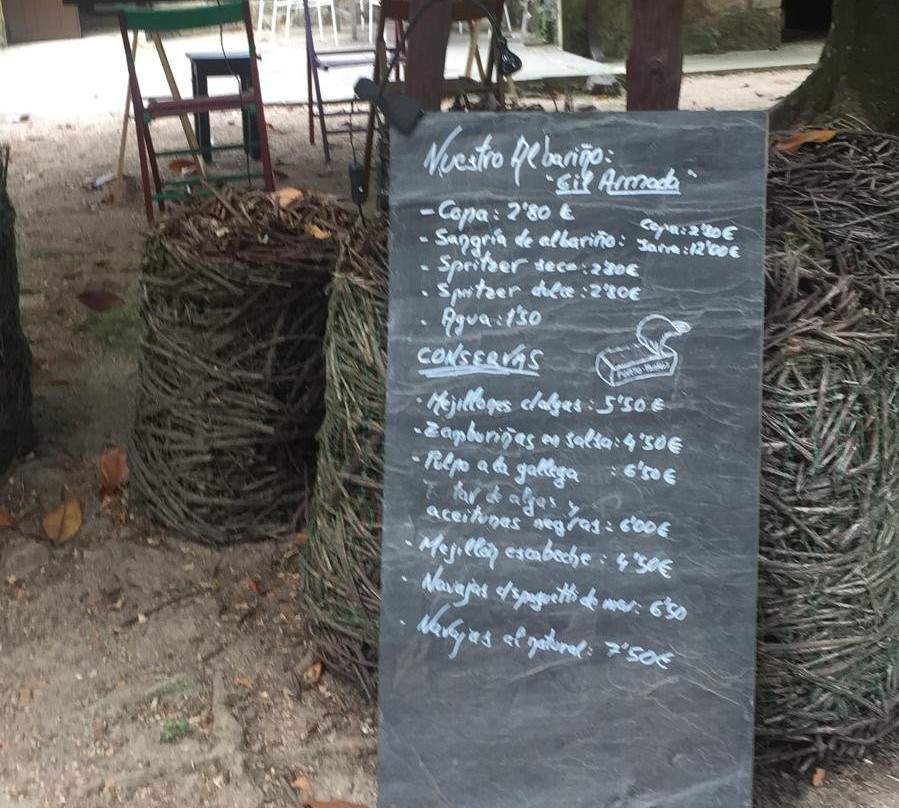 Nuestro Albariño:
"Gil Armada"
- Copa: 2'80 €
- Sangría de albariño: Copa: 2'80€
Jarra: 12'00€
- Spritzer seco: 2'80€
- Spritzer dulce: 2'80€
- Agua: 1'50
CONSERVAS
PORTO-MUIÑOS
- Mejillones c/algas: 5'50 €
- Zamboriñas en salsa: 4'50€
- Pulpo a la gallega : 6'50€
tar de algas y
aceitunas negras: 6'00€
- Mejillón escabeche: 4'50€
- Navajas c/spaguetti de mar: 6'50
- Navajas al natural: 7'50€